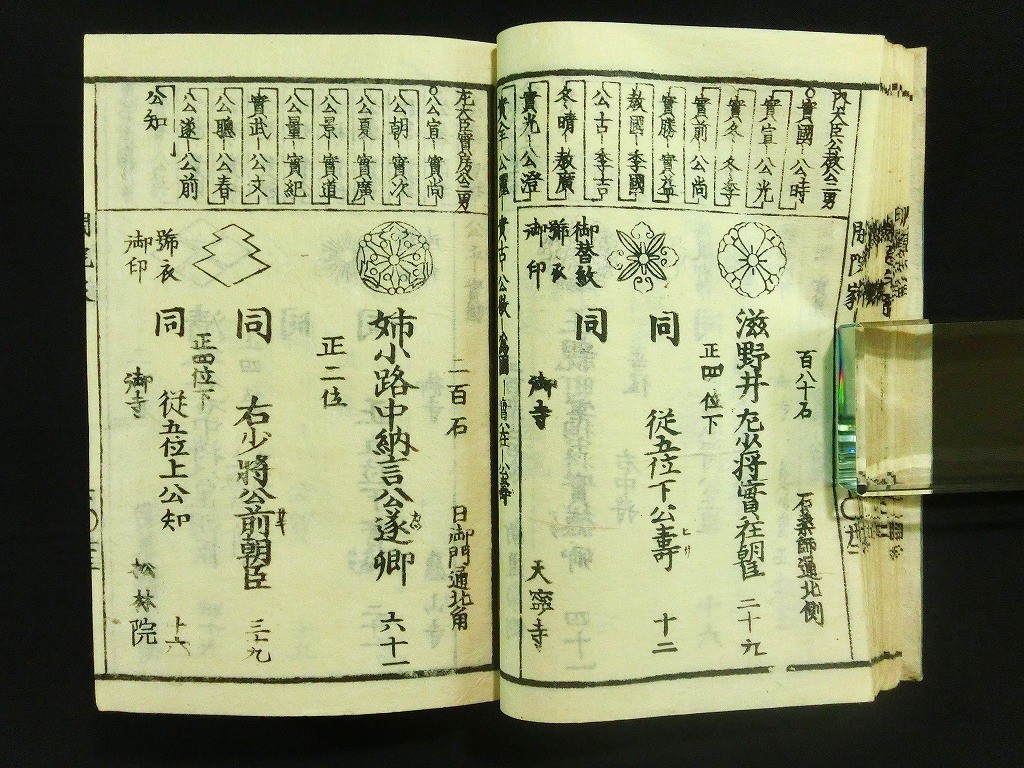 内大臣公教公三男
實國－公時
實宣－公光
實冬－冬季
實前－公尚
實勝－實益
教國－季國
公古－季吉
冬晴－教廣
實光－公澄
實全－公麗
實古－公敬
百八十石
石薬師通北側
滋野井左少将實在朝臣
二十九
正四位下
同
従五位下公壽
十二
御替紋
同
號衣
御印
御寺
天寧寺
左大臣實房公二男
公宣－實尚
公朝－實次
公夏－實廣
公景－實道
公量－實紀
實武－公文
公聰－公春
公遂－公前
公知
二百石
日御門通北角
姉小路中納言公遂卿
六十一
正二位
同
右少將公前朝臣
三十九
正四位下
同
従五位上公知
十六
號衣
御印
御寺
松林院